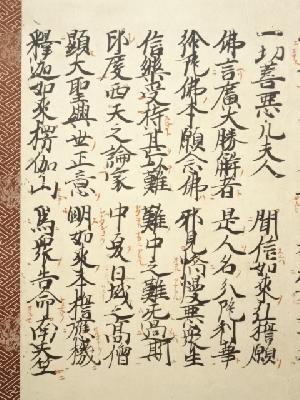 一切善惡凡夫人　聞信如來弘誓願
佛言廣大勝解者　是人名分陀利華
弥陀佛本願念佛　邪見憍慢惡衆生
信樂受持甚以難　難中之難无過斯
印度西天之論家　中夏日域之高僧
顯大聖興世正意　明如來本誓應機
釋迦如來楞伽山　爲衆告命南天竺